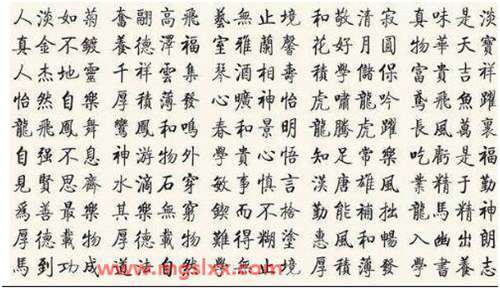 人淡如菊 奮翩高飛 藝無止境 和敬清寂 真味是淡
真金不鍍 養德澤福 室雅蘭馨 花好月圓 物華天寶
人杰地靈 千祥雲集 琴酒相壽 積學儲保 富貴吉祥
怡然自樂 厚積薄發 心曠神怡 虎嘯龍吟 鳶飛魚躍
龍飛鳳舞 鸞鳳和鳴 春和景明 龍騰虎躍 長風萬裏
自强不息 神游物外 學貴心悟 知足常樂 吃虧是福
見賢思齊 水滴石穿 敏事慎言 漢唐雄風 業精于勤
爲善最樂 其樂無窮 鍥而不捨 勤能補拙 龍馬精神
厚德載物 厚德載物 難得糊塗 惠風和暢 入幽出朗
馬到功成 道法自然 學無止境 厚積薄發 學書養志
www.mgslxx.com